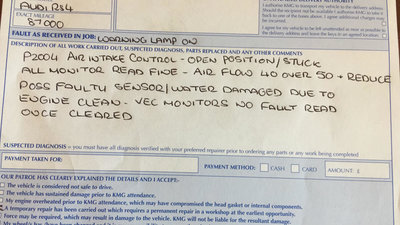 AUDI RS4
EXACT MILEAGE
87000
I authorise KMG to transport my vehicle to the delivery address.
FAULT AS RECEIVED IN JOB: WARNING LAMP ON
DESCRIPTION OF ALL WORK CARRIED OUT, SUSPECTED DIAGNOSIS, PARTS REPLACED AND ANY OTHER COMMENTS
P2004 AIR INTAKE CONTROL - OPEN POSITION/STUCK
ALL MONITOR READ FINE - AIR FLOW 40 OVER 50 + REDUCE
POSS FAULTY SENSOR/WATER DAMAGED DUE TO
ENGINE CLEAN. VEC MONITORS NO FAULT READ
ONCE CLEARED
SUSPECTED DIAGNOSIS – you must have all diagnosis verified with your preferred repairer prior to ordering any parts or any work being completed
PAYMENT TAKEN FOR:
PAYMENT METHOD: CASH CARD AMOUNT: £
OUR PATROL HAS CLEARLY EXPLAINED THE DETAILS AND I ACCEPT:-
The vehicle is considered not safe to drive.
The vehicle has sustained damage prior to KMG attendance.
My engine overheated prior to KMG attendance, which may have compromised the head gasket or internal components.
A temporary repair has been carried out which requires a permanent repair in a workshop at the earliest opportunity.
Force may be required, which may result in damage to the vehicle. KMG will not be liable for the resultant damage.